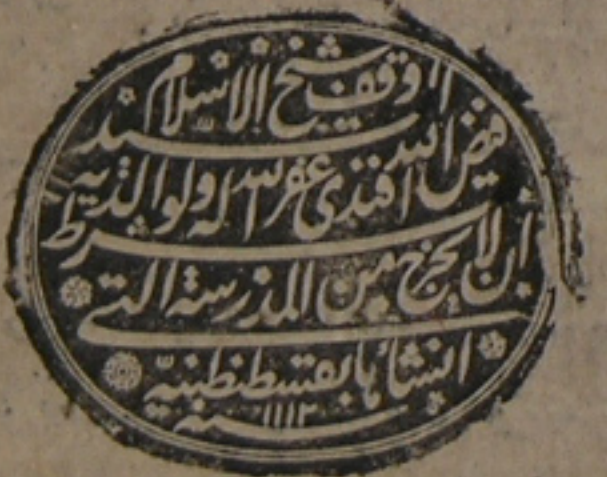 وقف شيخ الاسلام
السيد
فيض الله افندى غفر الله له ولوالديه
بشرط
ان لا يخرج من المدرسة التى
انشأها بقسطنطنيه
سنه ١١١٢